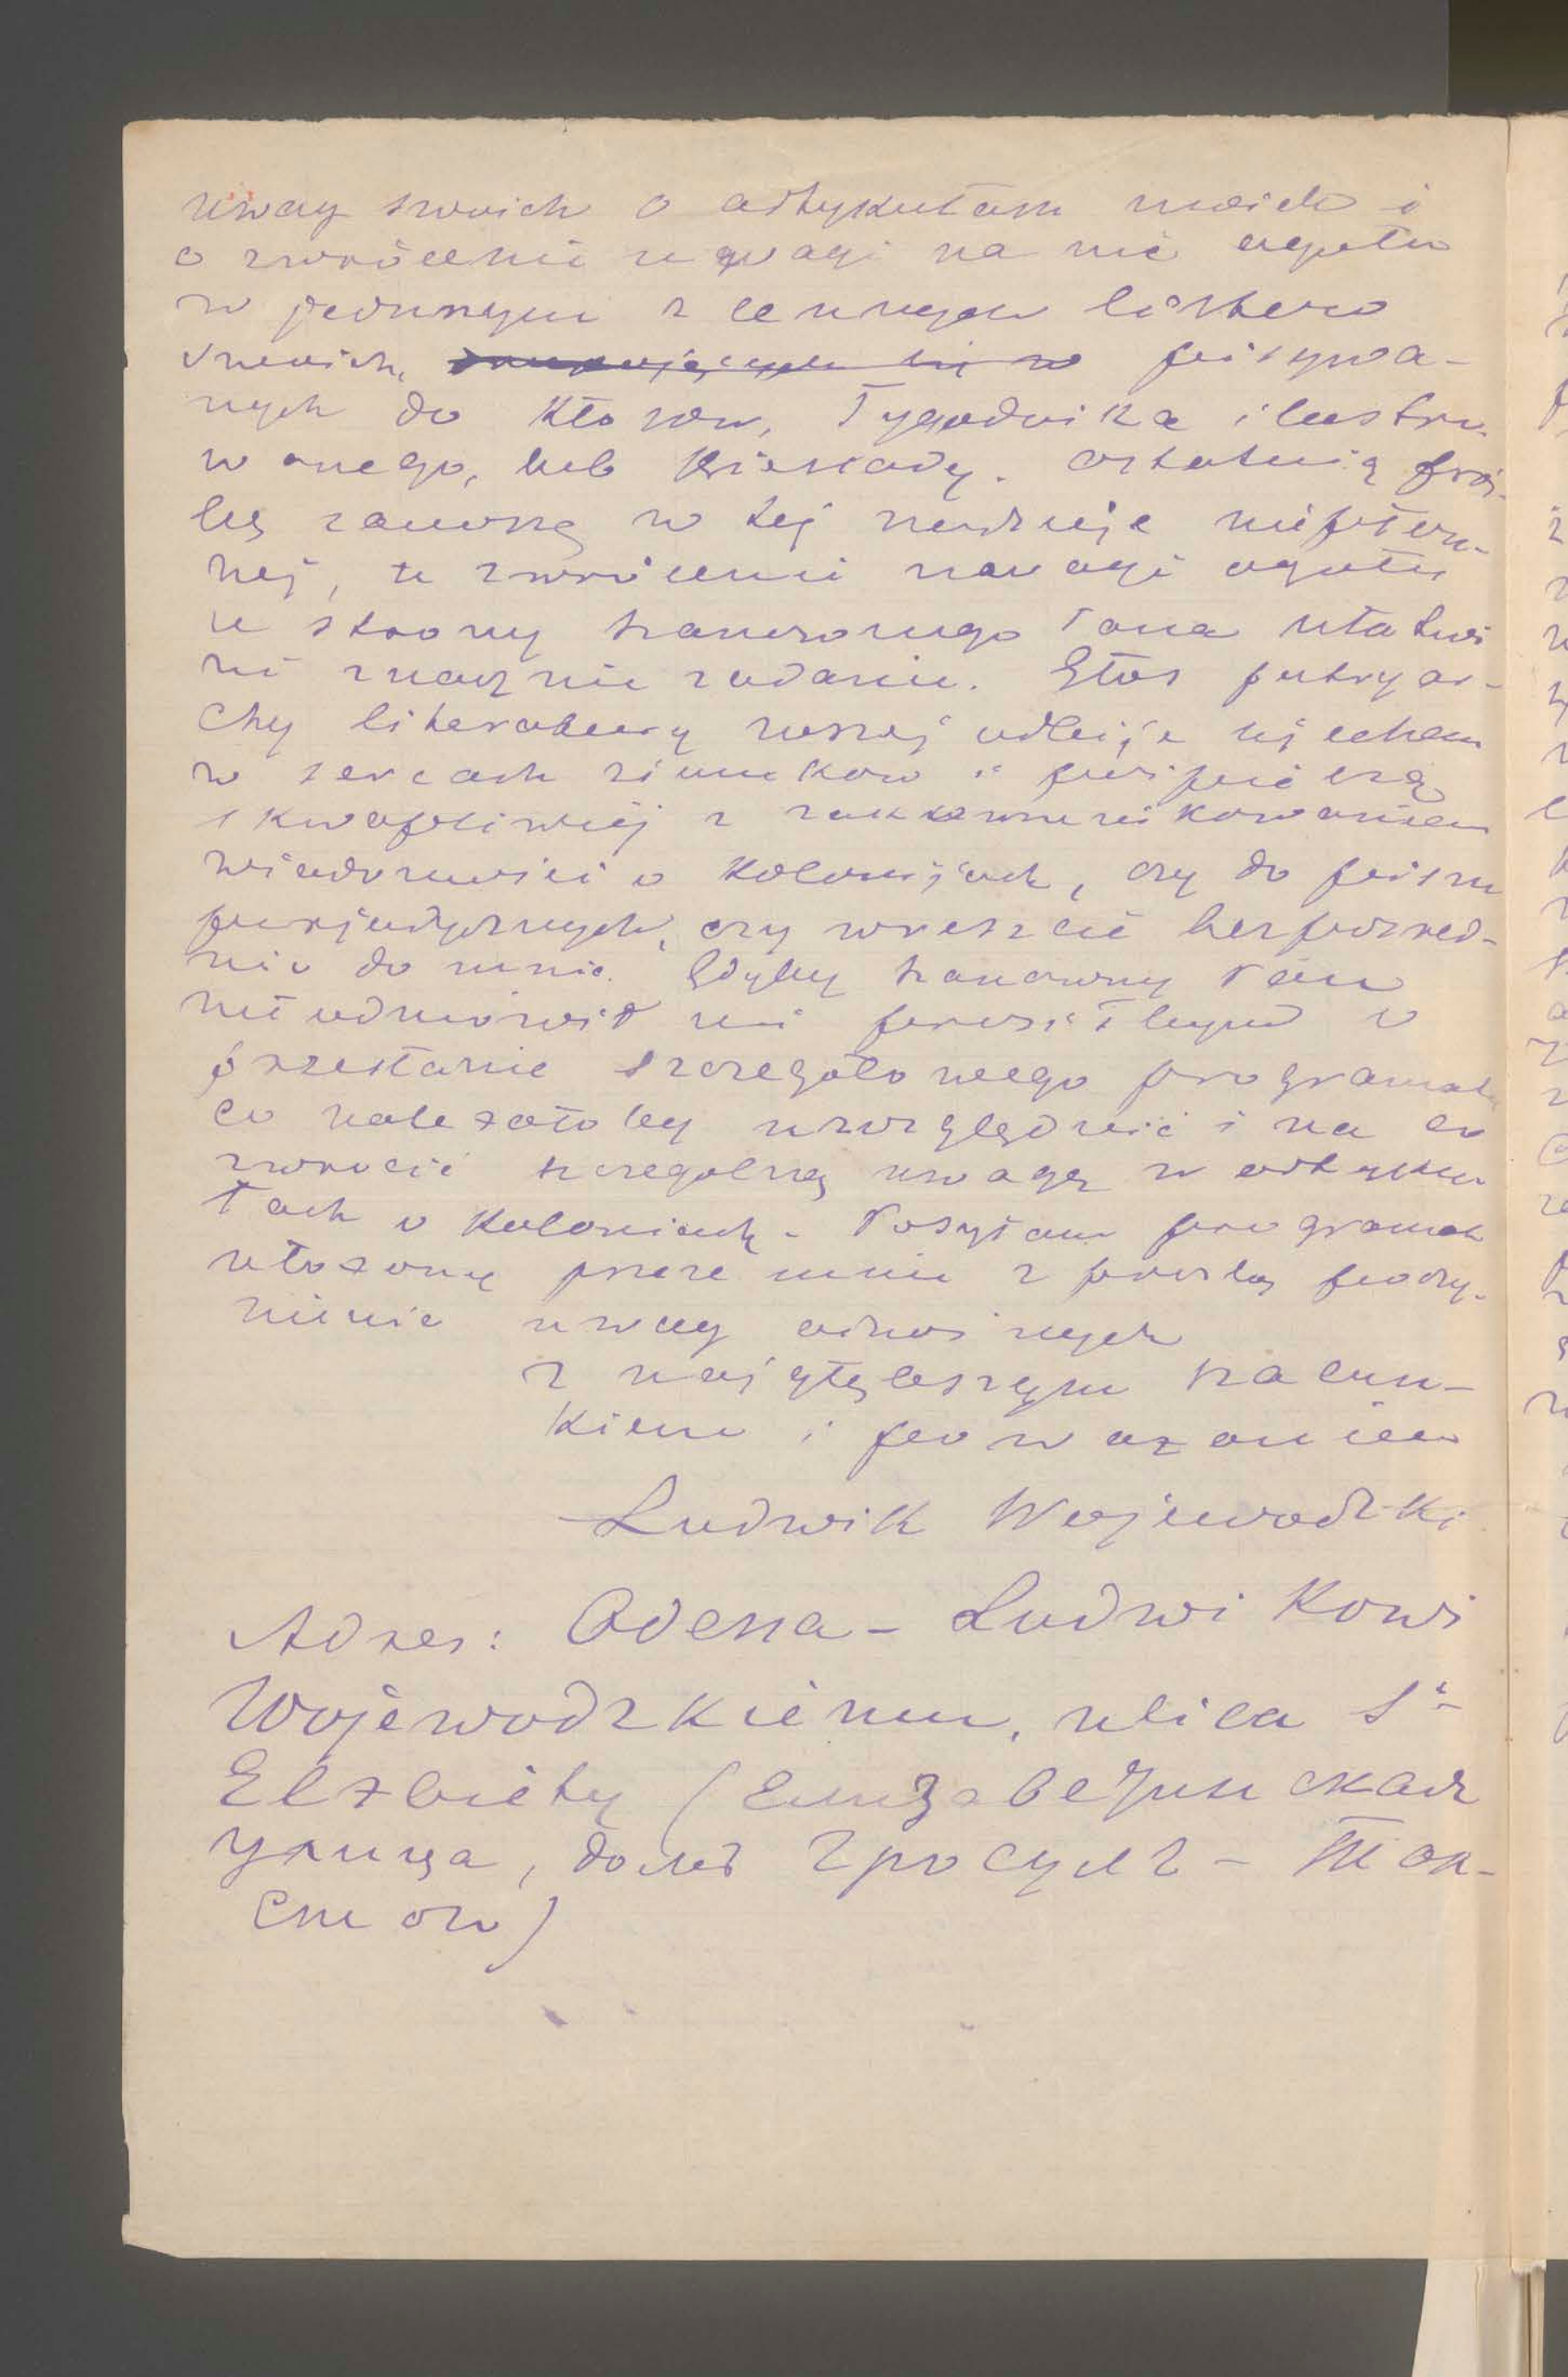 uwag swoich o artykułach moich i
o zwróceniu uwagi na nie ogółu
w jednym z cennych listów
swoich, pisywa-
nych do Kłosów, Tygodnika ilustro-
wanego, lub Biesiady. Ostatnią proś-
bę zanoszę w tej nadzieje niepłon-
nej, że zwrócenie uwagi ogółu
ze strony szanownego Pana ułatwi
mi znacznie zadanie. Głos patryar-
chy literatury naszej odbije się echem
w sercach ziomków i pośpieszą
skwapliwiej z zakkomunikowaniem
wiadomości o Kolonijach, czy do pism
peryjodycznych, czy wreszcie bezpośred-
nio do mnie. Gdyby szanowny Pan
nie odmówił mi prosiłbym o
przesłanie szczegółowego programatu
co należałoby uwzględnić i na co
zwrócić szczególną uwagę w artyku-
łach o Koloniach. Posyłam programat
ułożony przeze mnie z prośbą poczy-
nienie uwag odnośnych
z najgłębszym szacun-
kiem i poważaniem
Ludwik Wojewodzki
Adres: Odessa - Ludwikowi
Wojewodzkiemu, ulica Ś-
Elżbiety (Елизаветинская
улица, домъ Гросулъ - Ток-
)